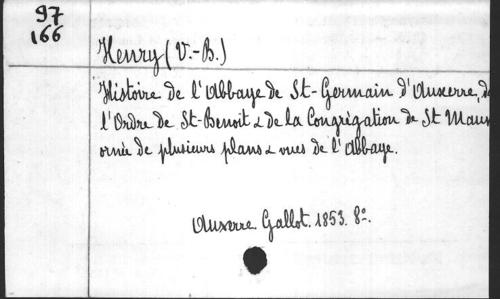 97
166
Henry (V.-B.)
Histoire de l'Abbaye de St-Germain d'Auxerre, de
l'Ordre de St-Benoit & de la Congrégation de St Maur
ornée de plusieurs plans & vues de l'Abbaye.
Auxerre Gallot. 1853. 8o.